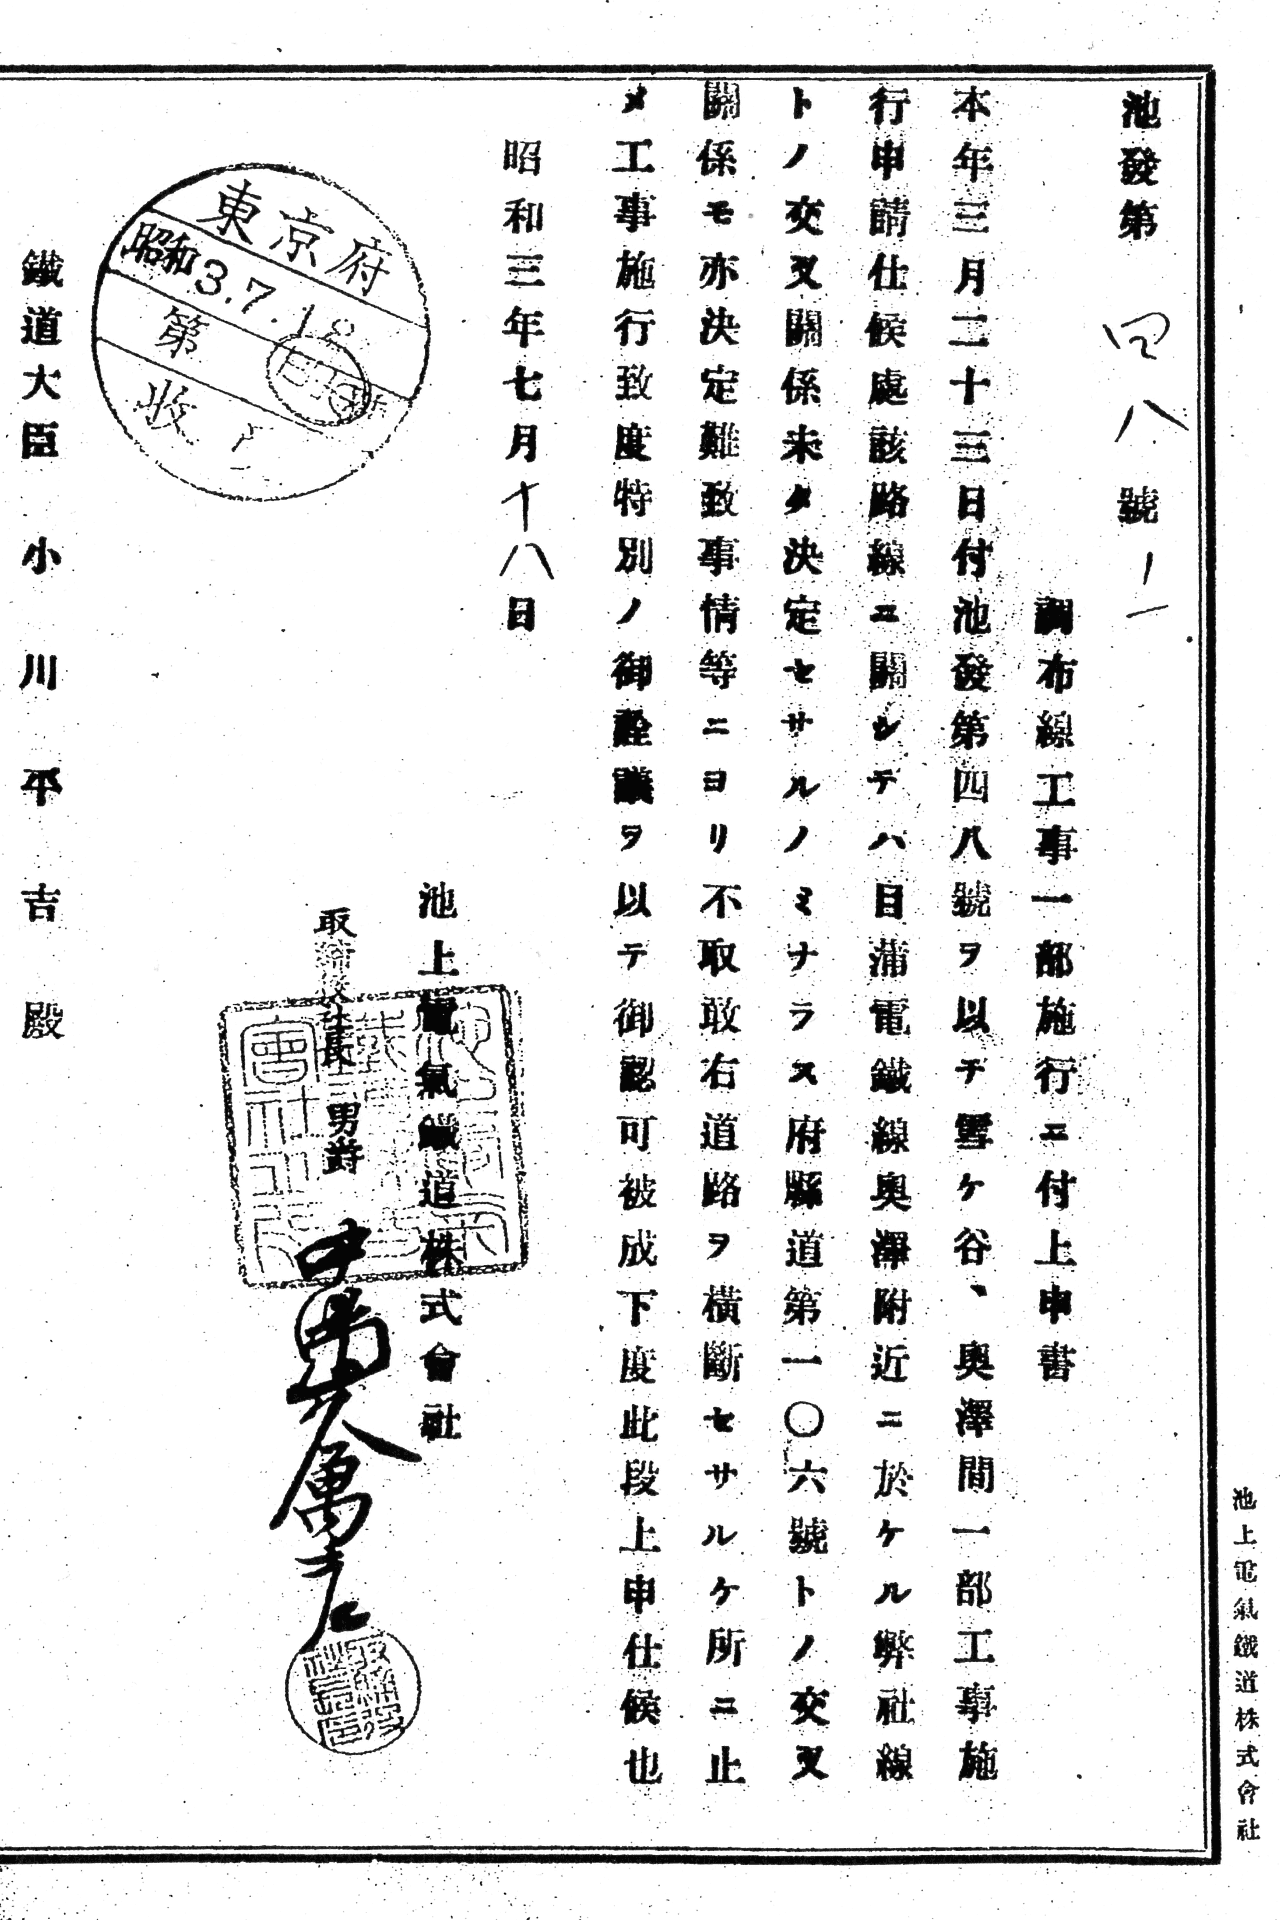 池發第四八號ノ一
調布線工事一部施行ニ付上申書
本年三月二十三日付池發第四八號ヲ以テ雪ケ谷、奥澤間一部工事施
行申請仕候處該路線ニ關シテハ目蒲電鐵線奥澤附近ニ於ケル弊社線
トノ交叉關係未タ決定セサルノミナラス府縣道第一〇六號トノ交叉
關係モ亦決定難致事情等ニヨリ不取敢右道路ヲ横斷セサルケ所ニ止
メ工事施行致度特別ノ御詮議ヲ以テ御認可被成下度此段上申仕候也
昭和三年七月十八日
池上電氣鐵道株式會社
取締役社長 男爵
東京府
昭和3.7.18
第
收
鐵道大臣小川平吉殿
池上電氣鐵道株式會社